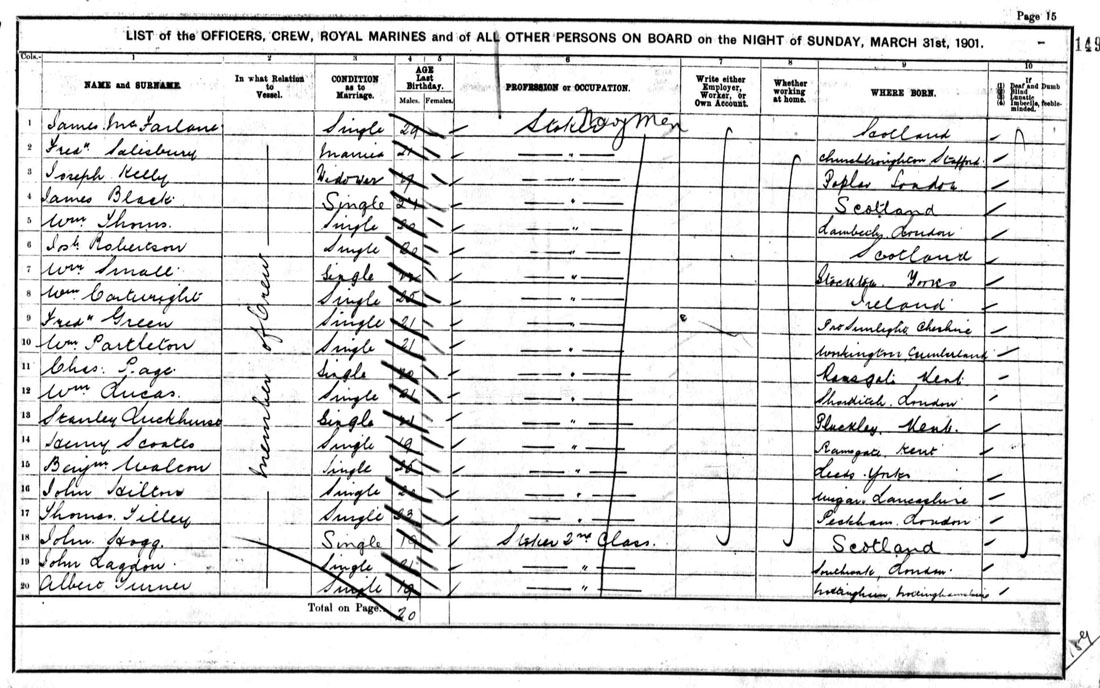 Page 15
LIST of the OFFICERS, CREW, ROYAL MARINES and of ALL OTHER PERSONS ON BOARD on the NIGHT of SUNDAY, MARCH 31st, 1901.
149
Cols. 1 2 3 4 5 6 7 8 9 10
NAME and SURNAME. In what Relation to Vessel. CONDITION as to Marriage. AGE Last Birthday. Males. Females. PROFESSION or OCCUPATION. Write either Employer, Worker, or Own Account. Whether working at home. WHERE BORN. If (1) Deaf and Dumb (2) Blind (3) Lunatic (4) Imbecile, feeble-minded.
Navy Men
Member of Crew
1 James McFarlane Single 29 Stoker Scotland
2 Fredk Salisbury Married 21 " Churchbroughton Stafford.
3 Joseph Kelly Widower " Poplar London
4 James Black Single 24 " Scotland
5 Wm Thoms. Single 20 " Lambeth, London
6 Josh Robertson Single " Scotland
7 Wm Small Single " Stockton Yorks
8 Wm Cartwright Single 25 " Ireland
9 Fredk Green Single 21 " Cheshire
10 Wm Partleton Single 21 " Workington Cumberland
11 Chas. Page Single 20 " Ramsgate Kent
12 Wm Lucas. Single 21 " Shorditch. London
13 Stanley Luckhurst Single 21 " Pluckley, Kent.
14 Henry Scoates Single 19 " Ramsgate, Kent
15 Benjm Walton Single " Leeds Yorks
16 John Hilton Single " Wigan Lancashire
17 Thomas Tilley Single 23 " Peckham. London
18 John Hogg. Single 19 Stoker 2nd Class. Scotland
19 John Lagdon Single 21 " Southwark, London.
20 Albert Turner Single 19 " Nottingham, Nottinghamshire
Total on Page. 20